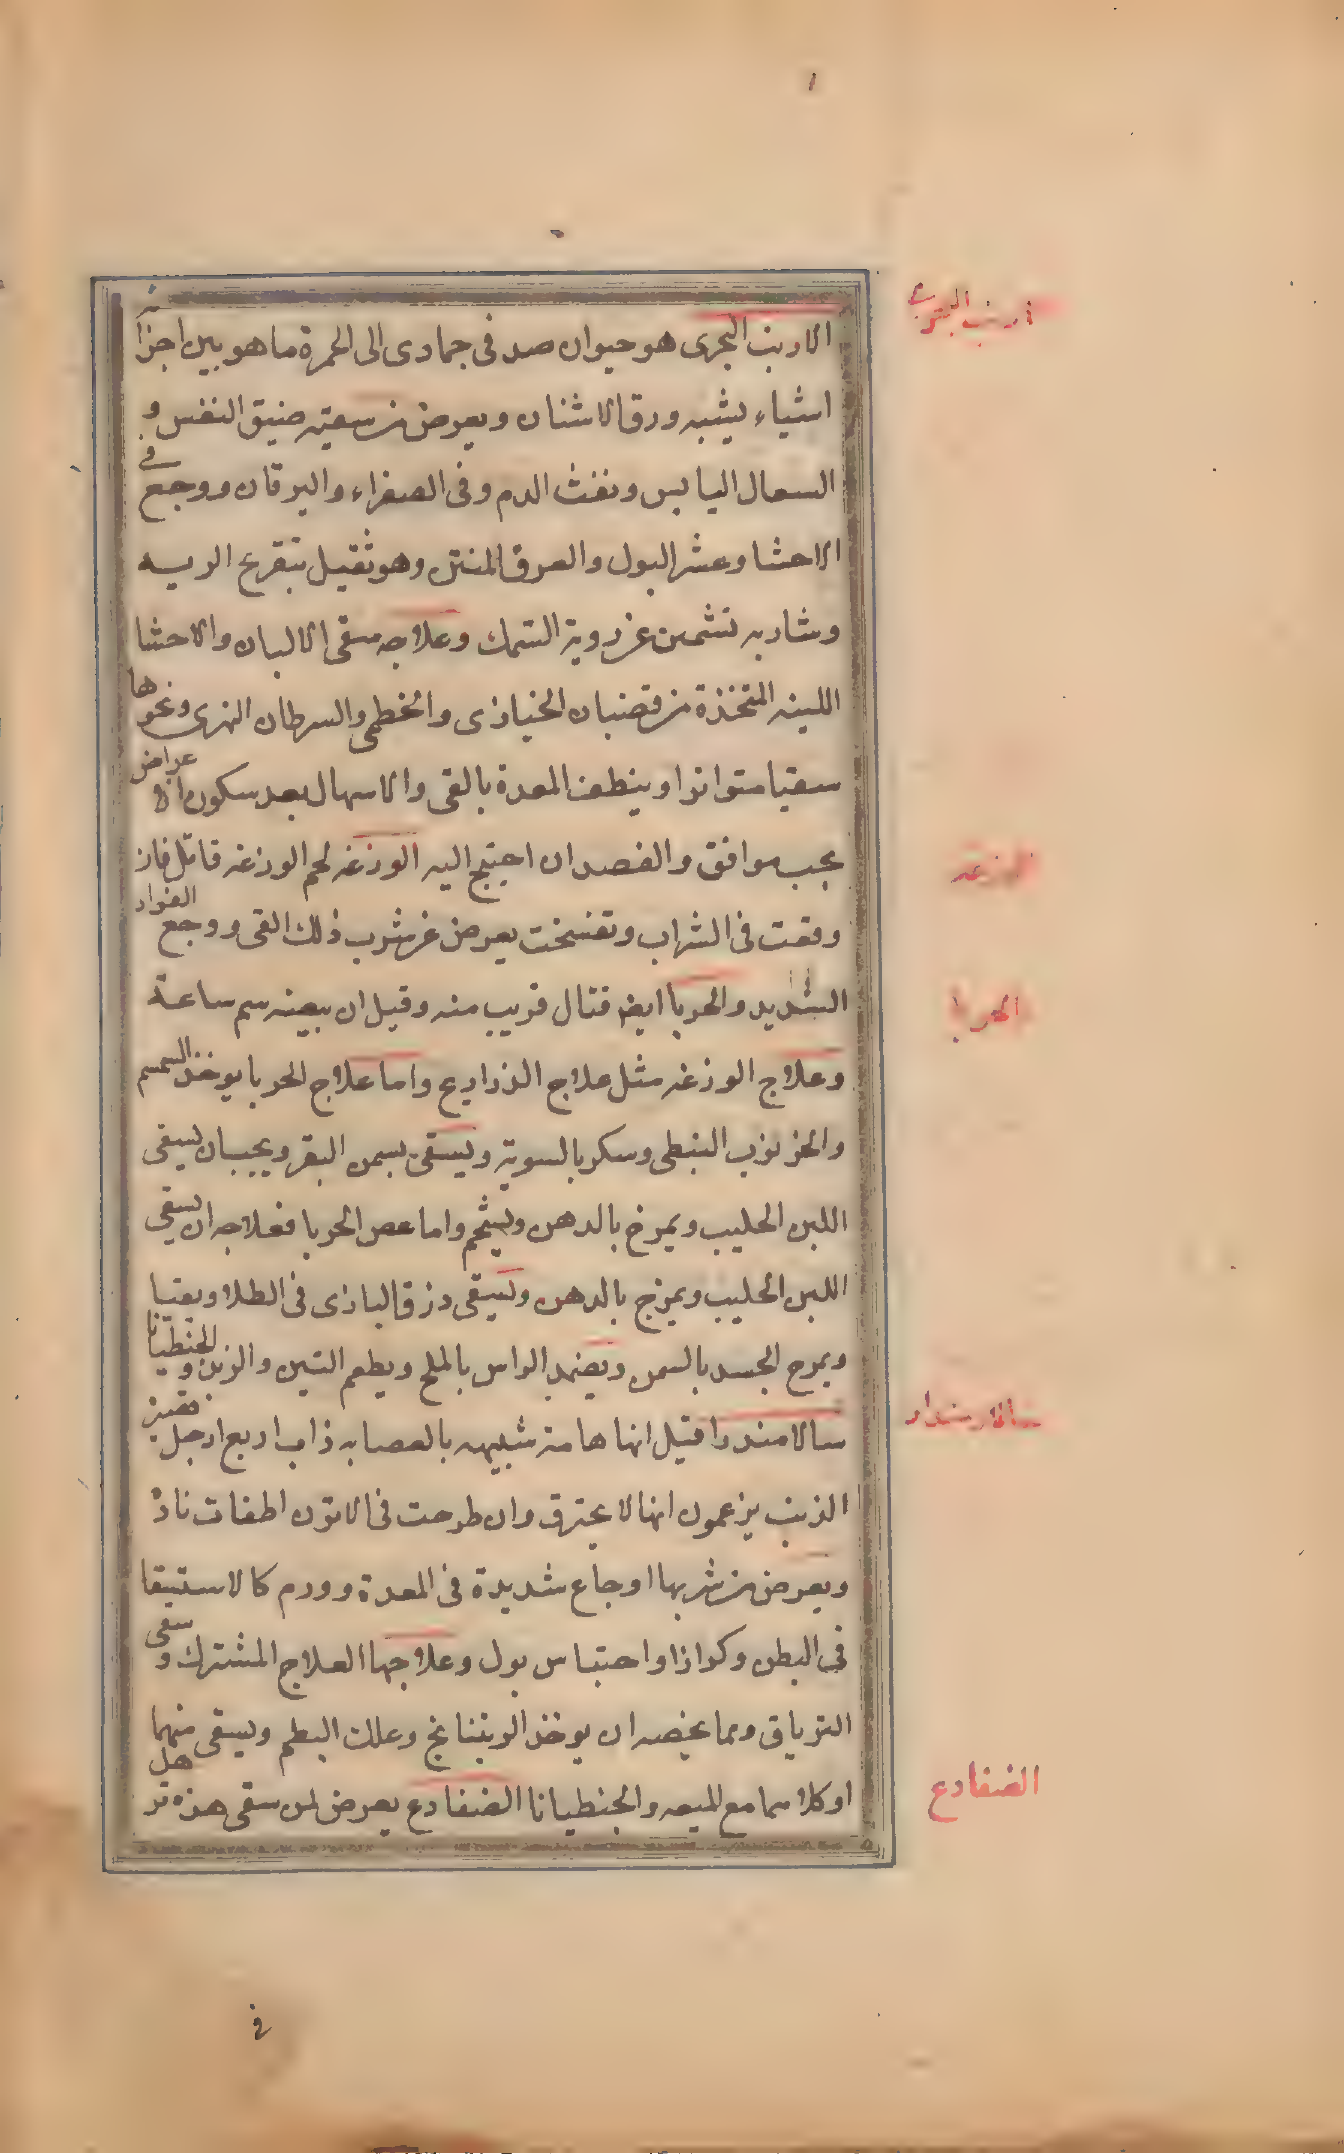 ارنب البحرى
الارنب البحرى هو حيوان صدفى جمادى الى الحمرة ما هو بين اجزائه
اشياء يشبه ورق الاشنان ويعرض من سقيه ضيق النفس و
السعال اليابس ونفث الدم وفى الصفراء واليرقان ووجع فى
الاحشا وعسر البول والعرق المنتن وهو ثقيل بتقريح الريه
وشاربه تشمئن عن روية السمك وعلاجه سقى الالبان والاحشا
اللينه المتخذة من قضبان الخبازى والخطمى والسرطان النهرى ونحوها
سقيا متواترا وينطف المعدة بالقى والاسهال بعد سكون الاعراض
بحب موافق والفصد ان احتيج اليه الوزغه لحم الوزغه قاتل فان
الوزغه
وقعت فى الشراب وتفسخت يعرض عن شرب ذلك القى ووجع الفواد
الشديد والحربا ايض قتال قريب منه وقيل ان بيضه سم ساعة
الحربا
وعلاج الوزغه مثل علاج الذراريح واما علاج الحربا يوخذ السمسم
والخرنوب النبطى وسكر بالسوية ويسقى بسمن البقر ويجب ان يسقى
اللبن الحليب ويمرخ بالدهن ويشحم واما عض الحربا فعلاجه ان يسقى
اللبن الحليب ويمزج بالدهن ويسقى ذرق البازى فى الطلا ويقيا
ويمرح الجسد بالسمن ويضمد الراس بالملح ويطعم التين والزبد والجنطيانا
سالامندرا
سالامندرا قيل انها هامة شبيهه بالعصابه ذاب اربع ارجل
الذنب يزعمون انها لا يحترق وان طرحت فى الاتون اطفات ناره
ويعرض من شربها اوجاع شديدة فى المعدة وورم كالاستسقا
فى البطن وكزازا واحتباس بول وعلاجها العلاج المشترك وسقى
الترياق ومما يخصه ان يوخذ الريتنانج وعلك البطم ويسقى منهما
او كلاهما مع الميعه والجنطيانا الضفادع يعرض لمن سقى هذه ترهل
الضفادع
فى